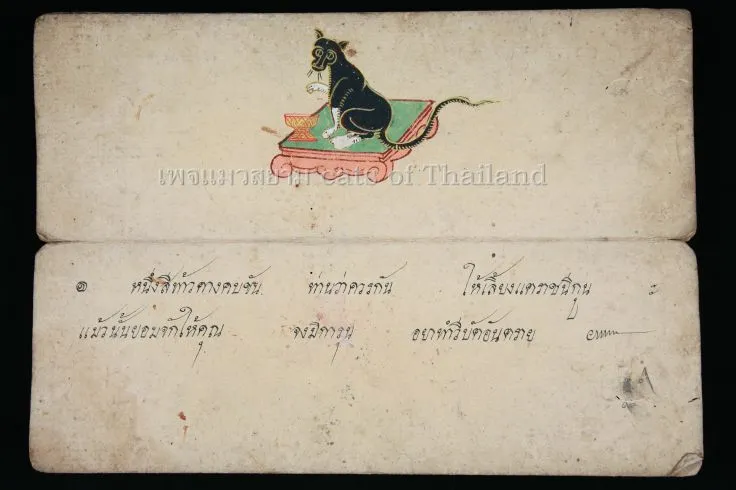 เพจแมวสยาม cats of Thailand
๑ หนึ่งสีท้าวคางคบขัน ท่านว่าควรกัน ให้เลี้ยงแตราชนีกูน ะ
แม้วนั้นยอมจักให้คุน จงมีการุน อยาทำวีบัดอันตราย